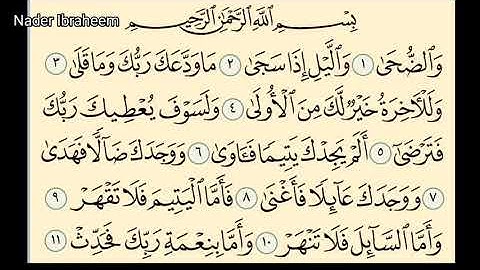 Nader Ibraheem
بِسْمِ اللَّهِ الرَّحْمَٰنِ الرَّحِيمِ
وَالضُّحَىٰ ١ وَاللَّيْلِ إِذَا سَجَىٰ ٢ مَا وَدَّعَكَ رَبُّكَ وَمَا قَلَىٰ ٣
وَلَلْآخِرَةُ خَيْرٌ لَّكَ مِنَ الْأُولَىٰ ٤ وَلَسَوْفَ يُعْطِيكَ رَبُّكَ
فَتَرْضَىٰ ٥ أَلَمْ يَجِدْكَ يَتِيمًا فَـَٔاوَىٰ ٦ وَوَجَدَكَ ضَآلًّا فَهَدَىٰ
٧ وَوَجَدَكَ عَآئِلًا فَأَغْنَىٰ ٨ فَأَمَّا الْيَتِيمَ فَلَا تَقْهَرْ ٩
وَأَمَّا السَّآئِلَ فَلَا تَنْهَرْ ١٠ وَأَمَّا بِنِعْمَةِ رَبِّكَ فَحَدِّثْ ١١